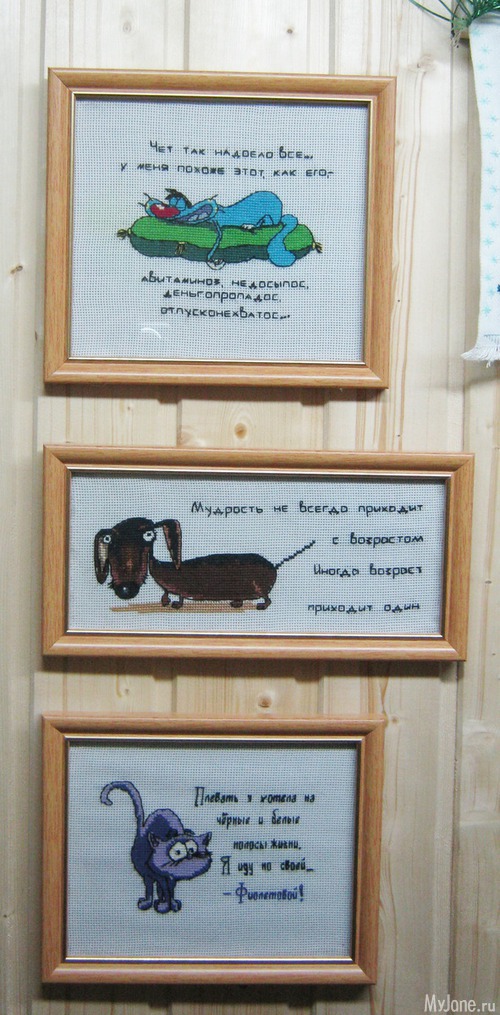 Чет так надоело все...
у меня похоже этот, как его,-
авитаминоз, недосыпос,
деньгопропадос,
отпусконехватос...
Мудрость не всегда приходит
с возрастом
Иногда возраст
приходит один
Плевать я хотела на
чёрные и белые
полосы жизни.
Я иду по своей...
- Фиолетовой!
MyJane.ru